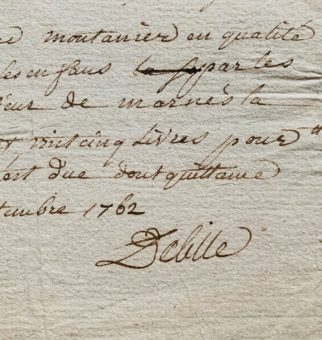 moutanier en qualité
les enfans par les
sieur de marnés la
vint cinq livres pour
dont quittance
tembre 1762
Debille